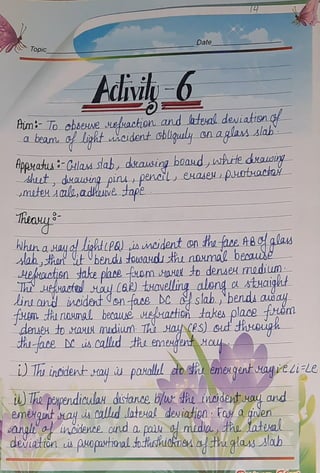 14
Topic
Date
Activity - 6
Aim:- To observe refraction and lateral deviation of
a beam of light incident obliquely on a glass slab
Apparatus:- Glass slab, drawing board, white drawing
sheet, drawing pins, pencil, eraser, protractor
meter scale, adhesive tape
Theory:-
When a ray of light (PQ) is incident on the face AB of glass
slab, then it bends towards the normal because
refraction take place from rarer to denser medium.
The refracted ray (QR) travelling along a straight
line and incident on face DC of slab, bends away
from the normal because refraction takes place from
denser to rarer medium The ray (RS) out through
the face DC is called the emergent ray
i) The incident ray is parallel to the emergent ray i.e Li=Le
ii) The perpendicular distance b/w the incident ray and
emergent ray is called lateral deviation. For a given
angle of incidence and a pair of media, the lateral
deviation is proportional to the thickness of the glass slab